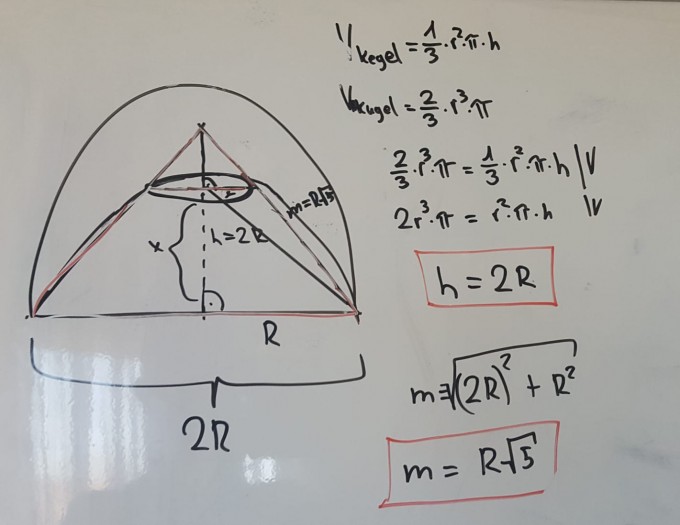 V Kegel = 1/3 · r² · π · h
V Kugel = 2/3 · r³ · π
2/3 · r³ · π = 1/3 · r² · π · h | V
2r³ · π = r² · π · h
h = 2R
m = √(2R)² + R²
m = R√5
m=R√5
r
x
h = 2R
R
2R